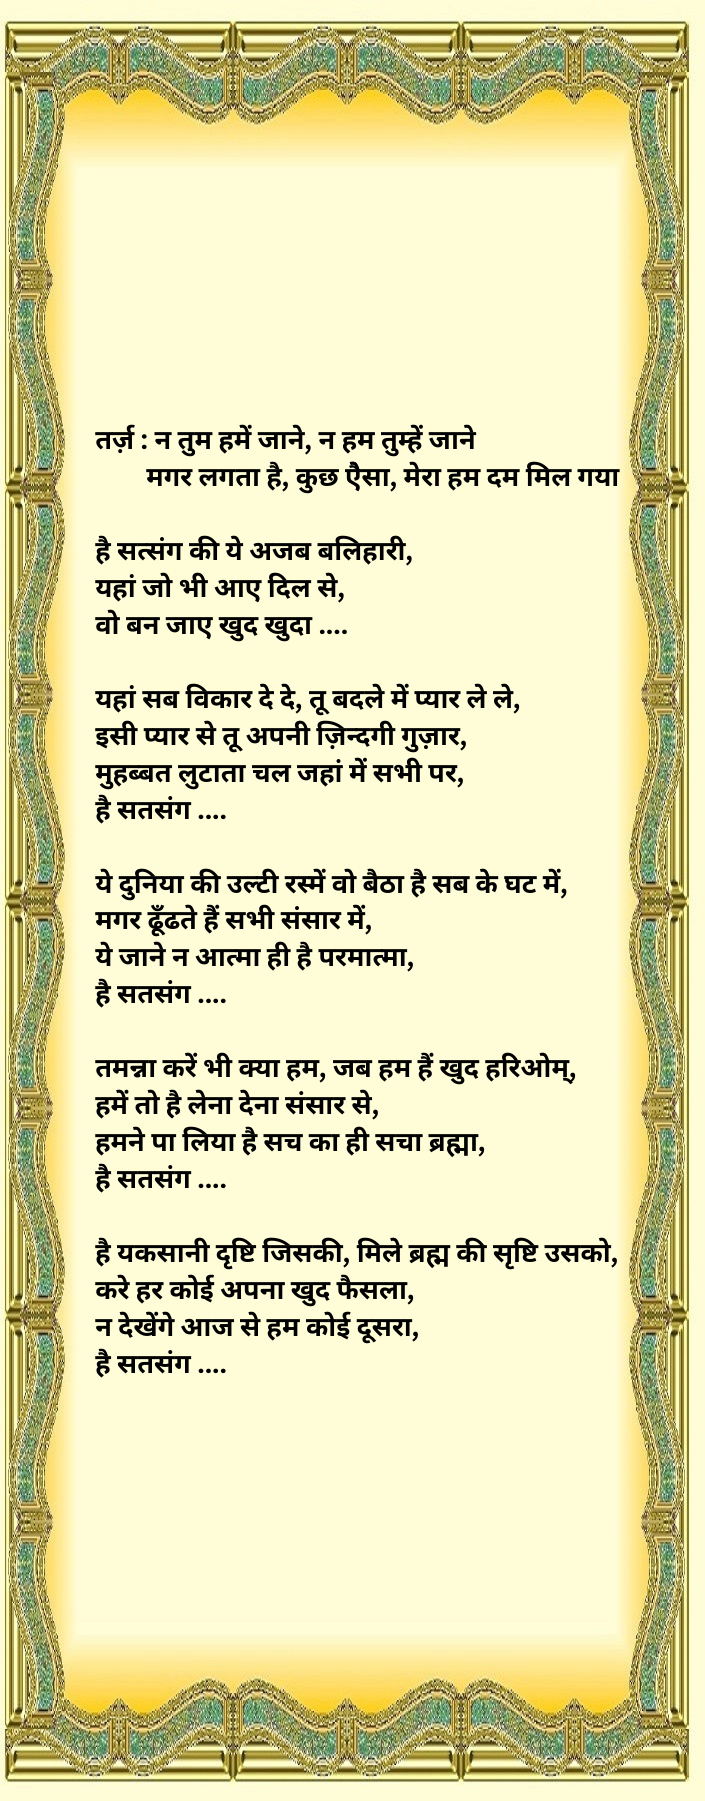 तर्ज़ : न तुम हमें जाने, न हम तुम्हें जाने
मगर लगता है, कुछ ऐैसा, मेरा हम दम मिल गया
है सत्संग की ये अजब बलिहारी,
यहां जो भी आए दिल से,
वो बन जाए खुद खुदा ....
यहां सब विकार दे दे, तू बदले में प्यार ले ले,
इसी प्यार से तू अपनी ज़िन्दगी गुज़ार,
मुहब्बत लुटाता चल जहां में सभी पर,
है सतसंग ....
ये दुनिया की उल्टी रस्में वो बैठा है सब के घट में,
मगर ढूँढते हैं सभी संसार में,
ये जाने न आत्मा ही है परमात्मा,
है सतसंग ....
तमन्ना करें भी क्या हम, जब हम हैं खुद हरिओम्,
हमें तो है लेना देना संसार से,
हमने पा लिया है सच का ही सचा ब्रह्मा,
है सतसंग ....
है यकसानी दृष्टि जिसकी, मिले ब्रह्म की सृष्टि उसको,
करे हर कोई अपना खुद फैसला,
न देखेंगे आज से हम कोई दूसरा,
है सतसंग ....